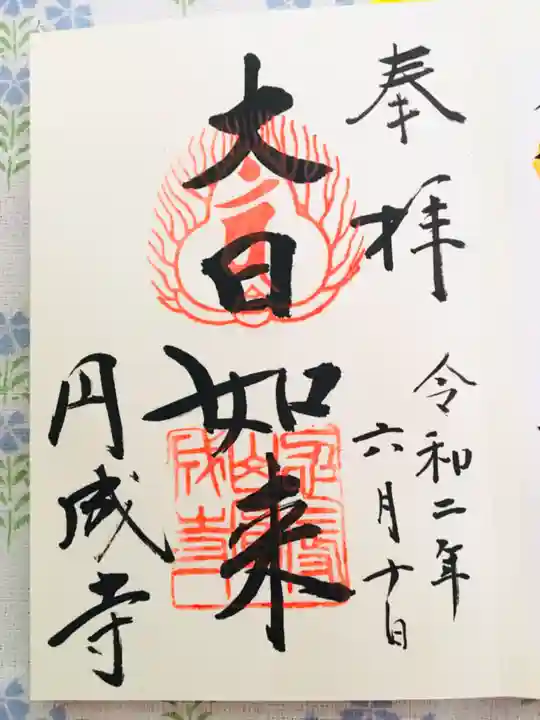 奉拝
令和二年
六月十日
大日如来
円成寺